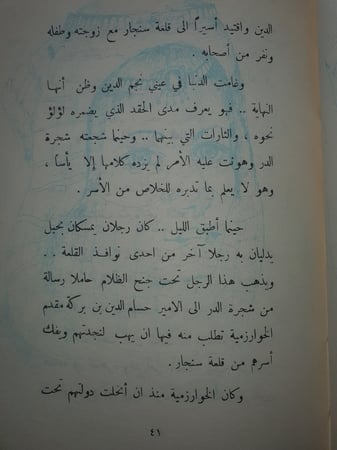 الدين واقتيد أسيراً الى قلعة سنجار مع زوجته وطفله
ونفر من أصحابه .
وغامت الدنيا في عيني نجم الدين وظن أنها
النهاية .. فهو يعرف مدى الحقد الذي يضمره لؤلؤ
نحوه ، والثارات التي بينهما .. وحينما شجعته شجرة
الدر وهونت عليه الأمر لم يزده كلامها إلا يأساً ،
وهو لا يعلم بما تدبره للخلاص من الأسر .
حينما أطبق الليل .. كان رجلان يمسكان بحبل
يدليان به رجلا آخر من احدى نوافذ القلعة . .
ويذهب هذا الرجل تحت جنح الظلام حاملا رسالة
من شجرة الدر الى الامير حسام الدين بن بركة مقدم
الخوارزمية تطلب منه فيها ان يهب لنجدتهم ويفك
أسرهم من قلعة سنجار .
وكان الخوارزمية منذ ان أنحلت دولتهم تحت
٤١